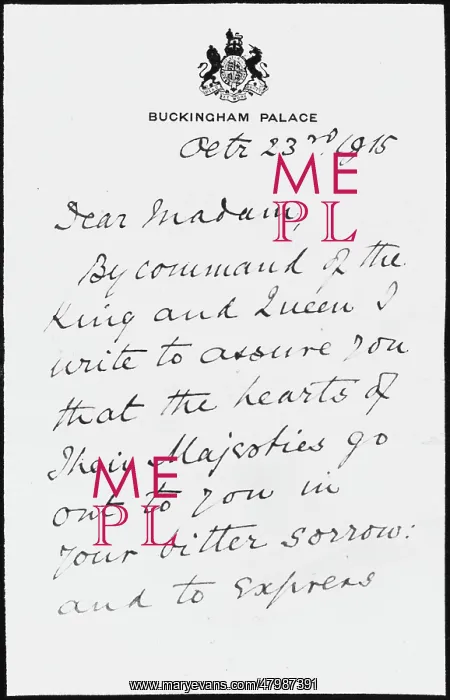 BUCKINGHAM PALACE
Octr 23rd. 1915
Dear Madam,
By command of the
King and Queen I
write to assure you
that the hearts of
Their Majesties go
out to you in
your bitter sorrow:
and to express
ME
PL
ME
PL
www.maryevans.com/47987391